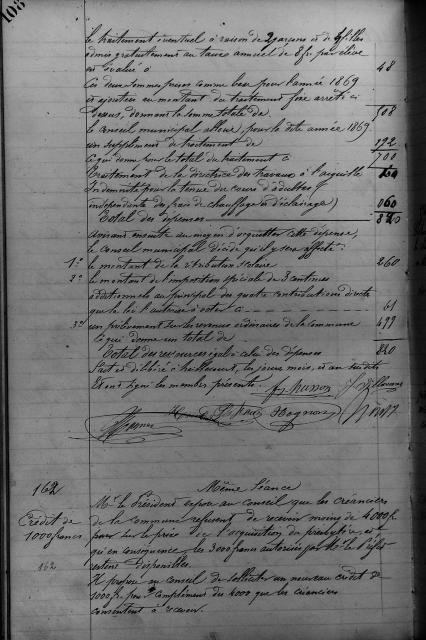 108
Le traitement éventuel à raison de 2 garçons et de 4 filles
admis gratuitement au taux annuel de 8 fr. par élève
est évalué à 48
Ces deux sommes prises comme base pour l'année 1869
et ajoutées au montant du traitement fixe arrêté ci
dessus, donnant la somme totale de 508
Le conseil municipal alloue, pour la dite année 1869
un supplément de traitement de 192
Ce qui donne pour le total du traitement à 700
Traitement de la directrice des travaux à l'aiguille
Indemnité pour la tenue du cours d'adultes
indépendante des frais de chauffage & d'éclairage) 060
Total des dépenses 820
Avisant ensuite au moyen d'acquitter cette dépense,
le Conseil municipal décide qu'il y sera affecté :
1° le montant de la rétribution scolaire 260
2° le montant de l'imposition spéciale de 3 centimes
additionnels au principal des quatre contributions directes
que la loi l'autorise à voter à 61
3° un prélèvement sur les revenus ordinaires de la commune 499
Ce qui donne un total de 820
Total des ressources égal à celui des dépenses
Fait et délibéré à les jours, mois, et an susdits
Et ont signé les membres présents.
162
Même Séance
Crédit de
1000 francs
162
Mr le Président expose au Conseil que les créanciers
de la commune refusent de recevoir moins de 4000 f.
pour sur le prix de l'acquisition du presbytère, et
qu'en conséquence les 3000 francs autorisés par Mr le Préfet
restent disponibles.
Il propose au conseil de solliciter un nouveau crédit de
1000 fr. pour complément des 4000 que les créanciers
consentent à recevoir.